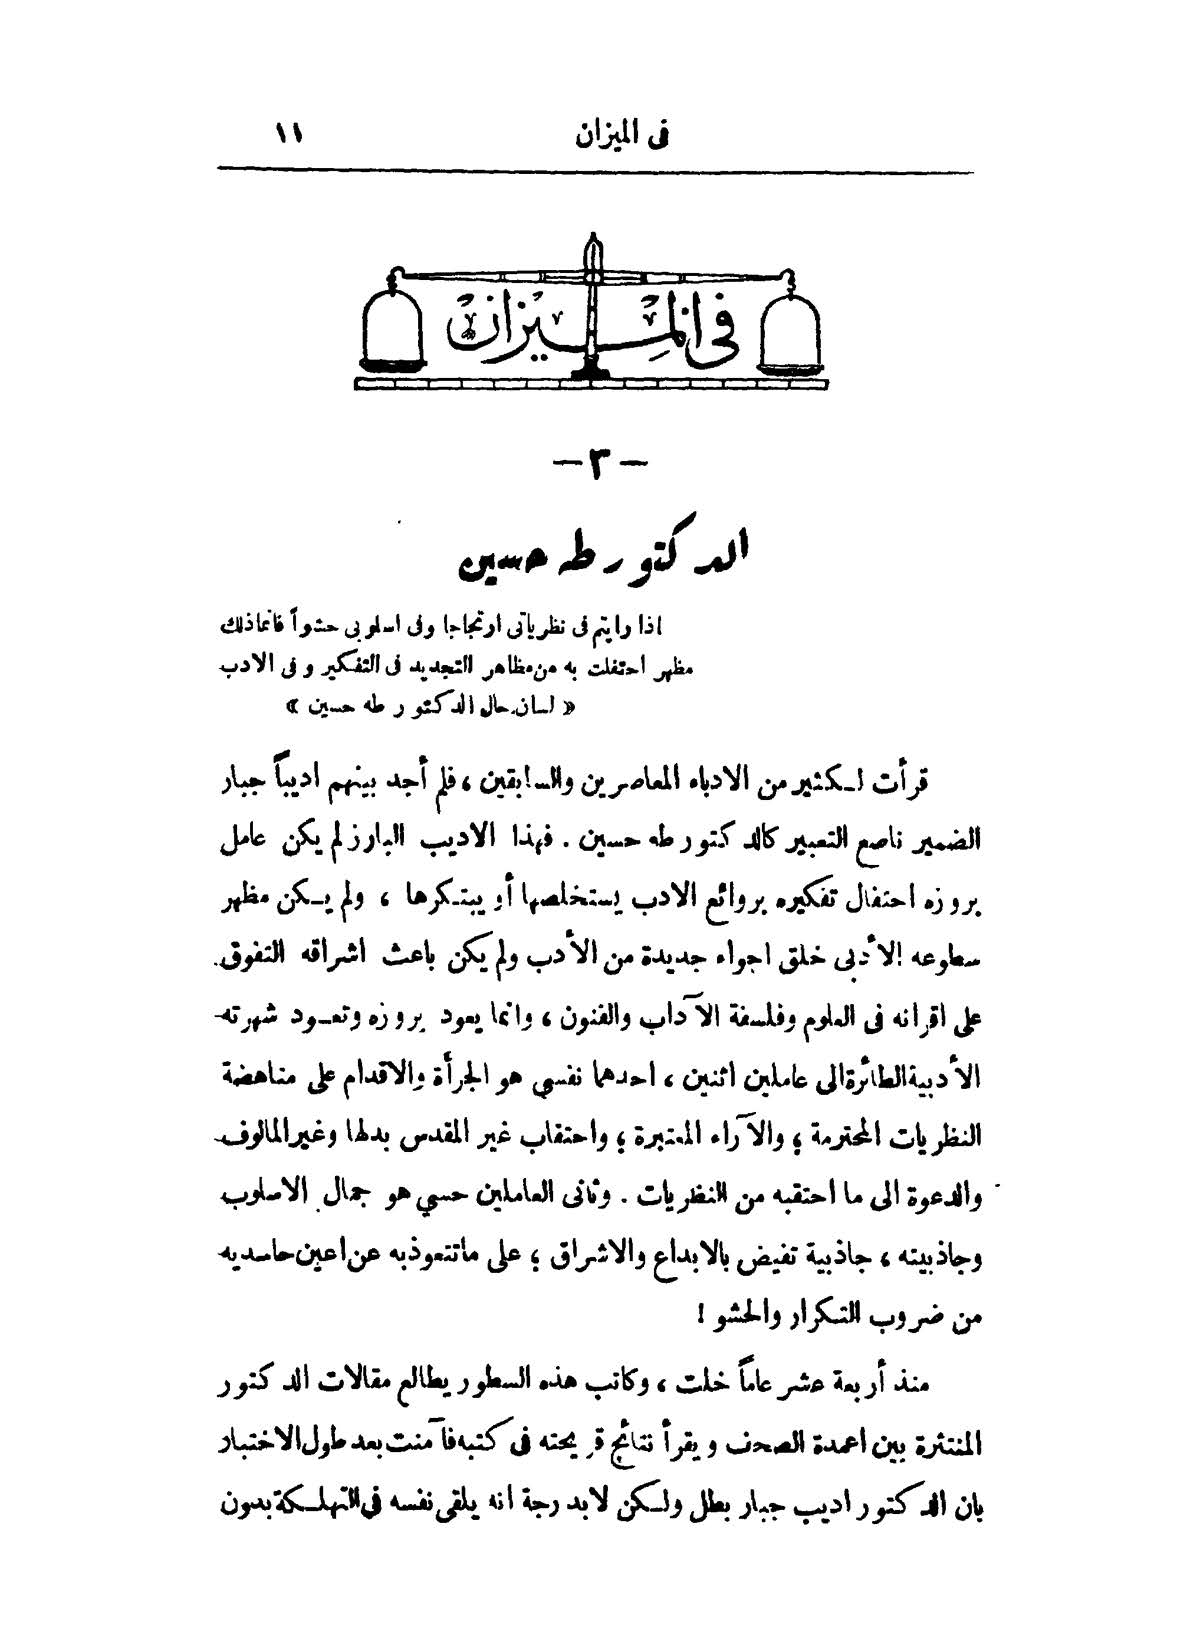 في الميزان ١١
في الميزان
— ٣ —
الدكتور طه حسين
اذا رايتم في نظرياتي ارتجاجا وفي اسلوبي حشواً فانما ذلك
مظهر احتفلت به من مظاهر التجديد في التفكير وفي الادب
« لسان حال الدكتور طه حسين »
قرأت لكثير من الادباء المعاصرين والسابقين ، فلم أجد بينهم اديباً جبار
الضمير ناصع التعبير كالدكتور طه حسين . فهذا الاديب البارز لم يكن عامل
بروزه احتفال تفكيره بروائع الادب يستخلصها أو يبتكرها ، ولم يكن مظهر
سطوعه الأدبي خلق اجواء جديدة من الأدب ولم يكن باعث اشراقه التفوق
على اقرانه في العلوم وفلسفة الآداب والفنون ، وانما يعود بروزه وتعود شهرته
الأدبية الطائرة الى عاملين اثنين ، احدهما نفسي هو الجرأة والاقدام على مناهضة
النظريات المحترمة ؛ والآراء المعتبرة ؛ واحتقاب غير المقدس بدلها وغير المالوف
والدعوة الى ما احتقبه من النظريات . وثاني العاملين حسي هو جمال الاسلوب
وجاذبيته ، جاذبية تفيض بالابداع والاشراق ؛ على ما تتعوذ به عن اعين حاسديه
من ضروب التكرار والحشو !
منذ أربعة عشر عاماً خلت ، وكاتب هذه السطور يطالع مقالات الدكتور
المنتثرة بين اعمدة الصحف ويقرأ نتائج قريحته في كتبه فآمنت بعد طول الاختبار
بان الدكتور اديب جبار بطل ولكن لابدرجة انه يلقى نفسه في التهلكة بدون